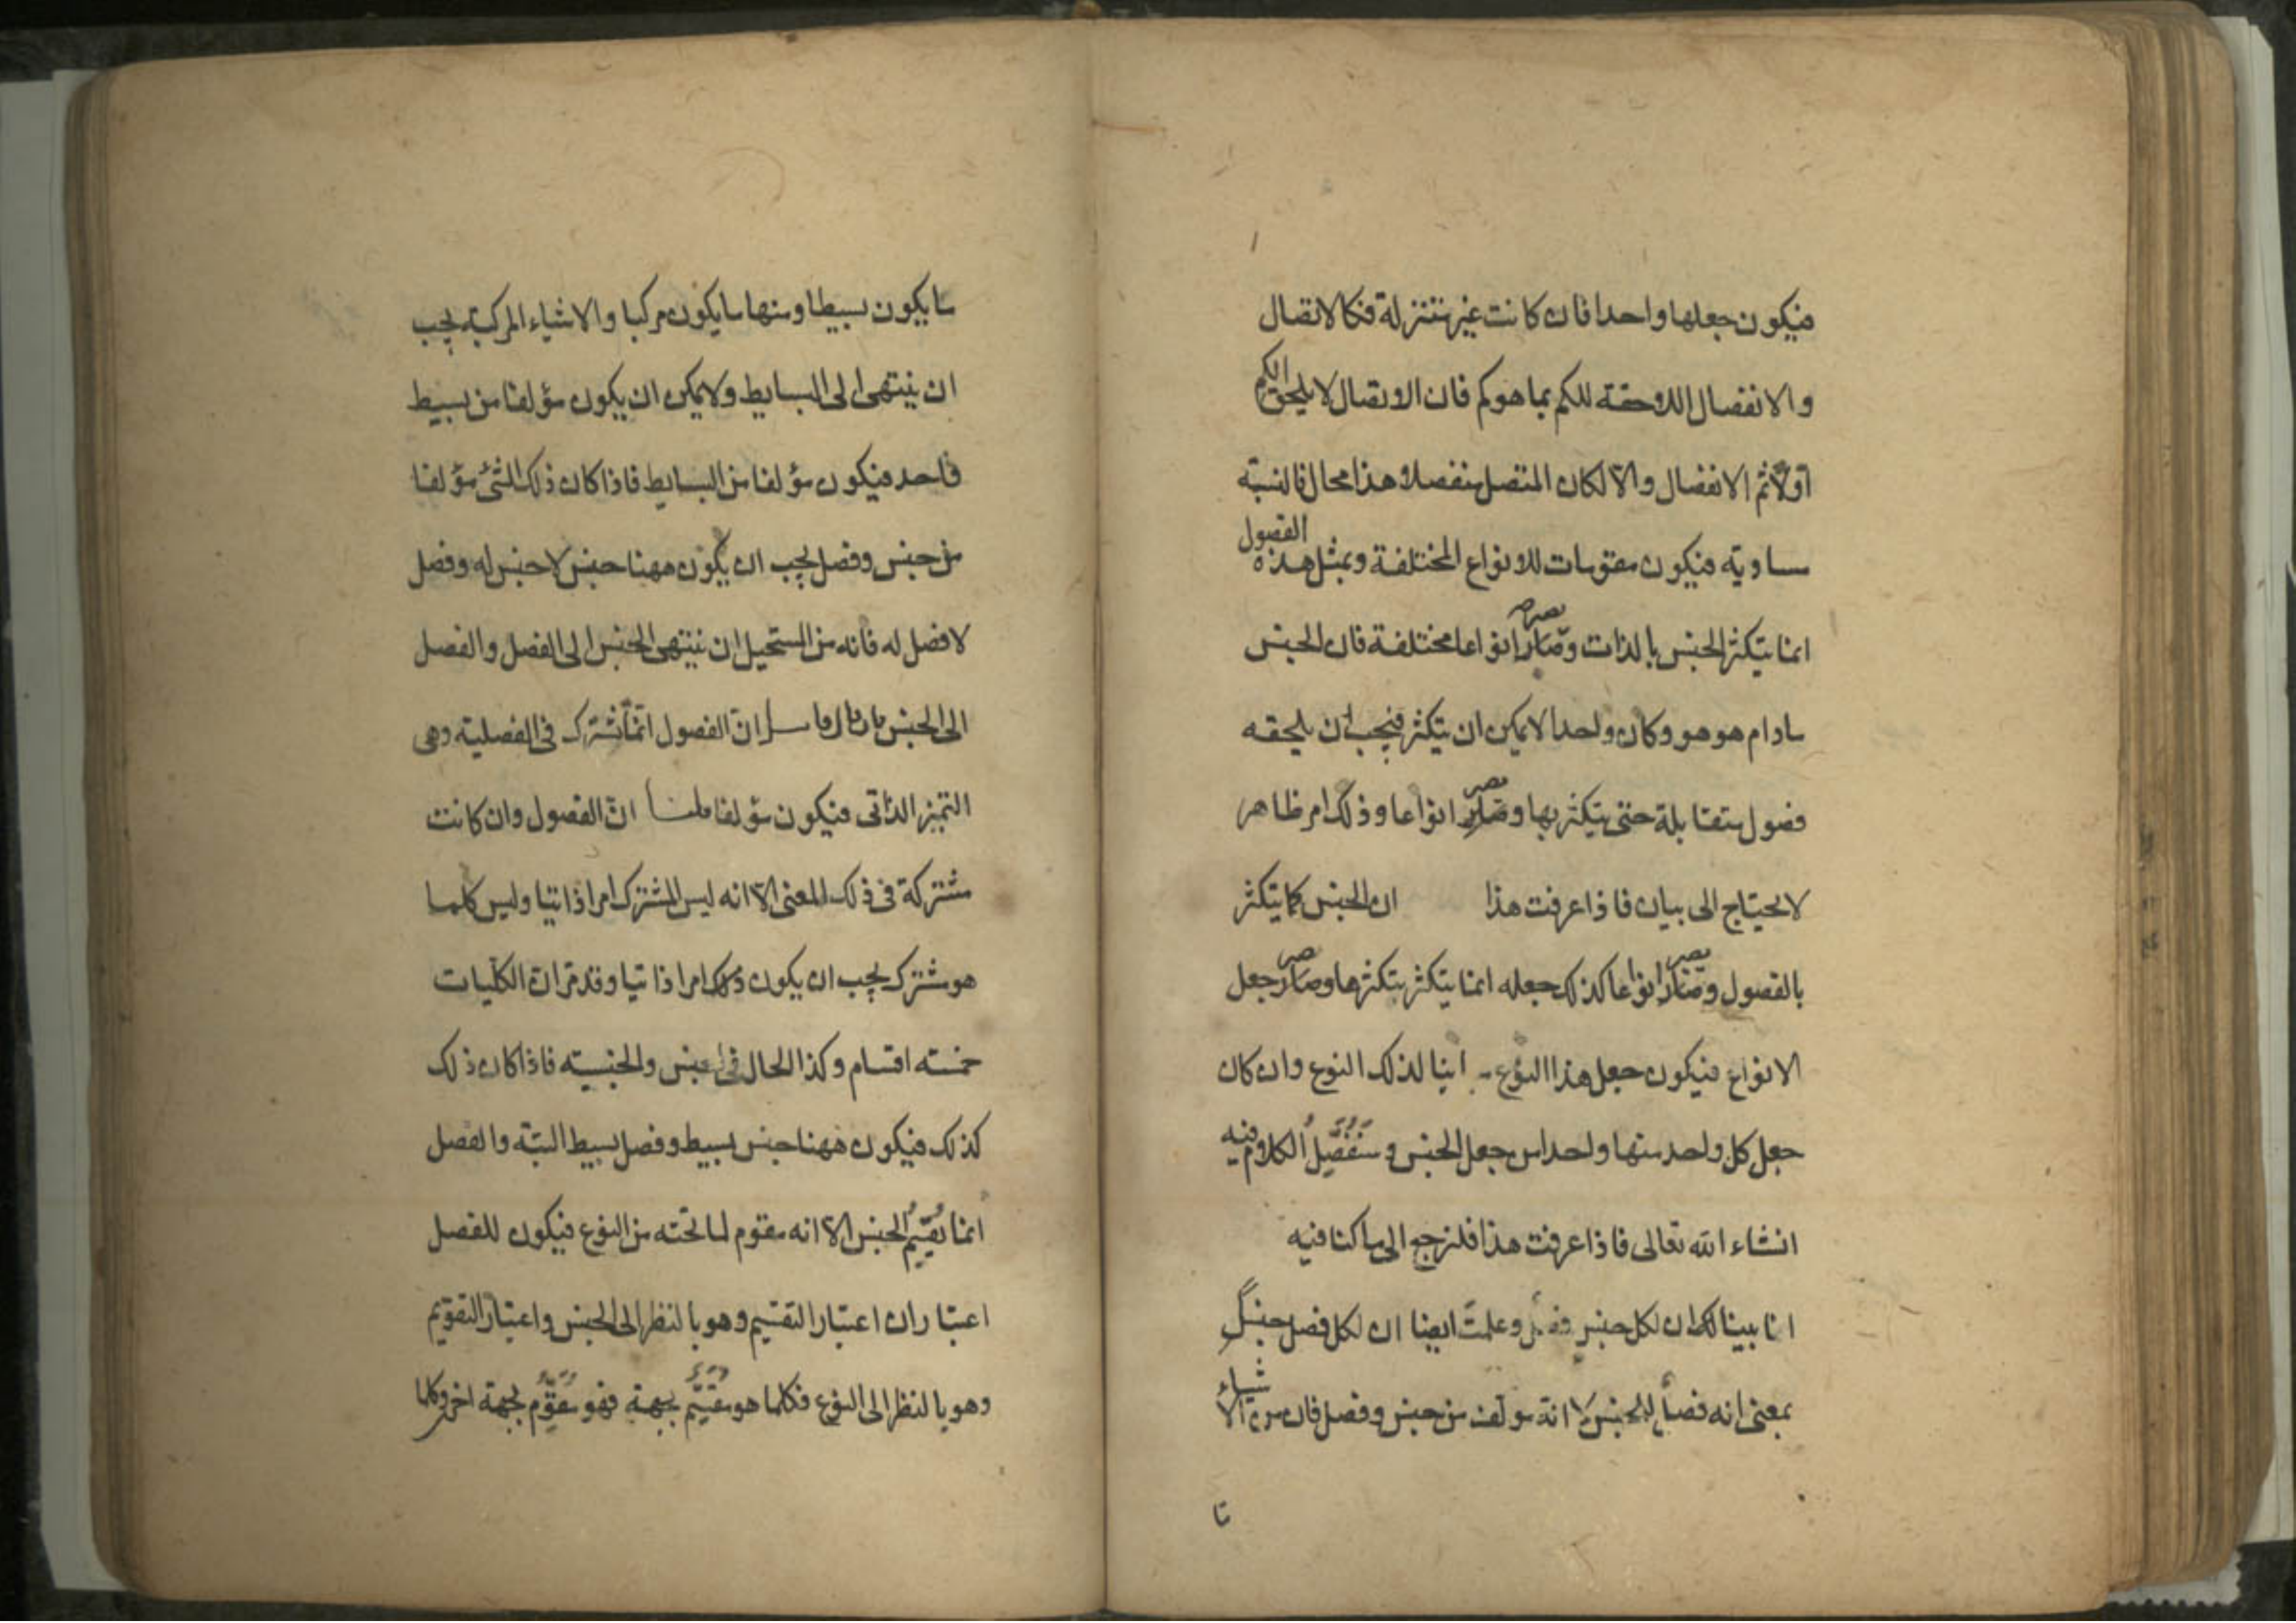 فيكون جعلها واحدا فان كانت غير متنزلة فكالاتصال
والانفصال اللاحقة للكم بما هو كم فان الاتصال لا يلحق الكم
اولا ثم الانفصال والا لكان المتصل منفصلا هذا محال فالنسبة
مساوية فيكون مقومات للانواع المختلفة وبمثل هذه الفصول
انما يتكثر الجنس بالذات وصار انواعا مختلفة فان الجنس
مادام هو هو وكان واحدا لا يمكن ان يتكثر فيجب ان يلحقه
فصول متقابلة حتى يتكثر بها ويصير انواعا وذلك امر ظاهر
لا يحتاج الى بيان فاذا عرفت هذا ان الجنس كما يتكثر
بالفصول وصار انواعا كذلك جعله انما يتكثر بتكثرها وصار جعل
الانواع فيكون جعل هذا النوع لذلك النوع وان كان
جعل كل واحد منها واحدا من جعل الجنس وسنفصل الكلام فيه
انشاء الله تعالى فاذا عرفت هذا فلنرجع الى ما كنا فيه
انا بينا لك ان لكل جنس فصل وعلمت ايضا ان لكل فصل جنس
بمعنى انه فصل للجنس لا انه مولف من جنس وفصل فان من الاشياء
ما
ما يكون بسيطا ومنها ما يكون مركبا والاشياء المركبة يجب
ان ينتهى الى البسايط ولا يمكن ان يكون مؤلفا من بسيط
واحد فيكون مؤلفا من البسايط فاذا كان ذلك الشئ مؤلفا
من جنس وفصل يجب ان يكون ههنا جنس لا جنس له وفصل
لا فصل له فانه من المستحيل ان ينتهى الجنس الى الفصل والفصل
الى الجنس ان الفصول انما تشترك فى الفصلية وهى
التميز الذاتى فيكون مؤلفا قلنا ان الفصول وان كانت
مشتركة فى ذلك المعنى الا انه ليس المشترك امرا ذاتيا وليس كلما
هو مشترك يجب ان يكون امرا ذاتيا وقد مر ان الكليات
خمسة اقسام وكذا الحال فى الجنس والجنسية فاذا كان ذلك
كذلك فيكون ههنا جنس بسيط وفصل بسيط البتة والفصل
انما يقسم الجنس الا انه مقوم لما تحته من النوع فيكون للفصل
اعتباران اعتبار التقسيم وهو بالنظر الى الجنس واعتبار التقويم
وهو بالنظر الى النوع فكلما هو مقسم بجهة فهو مقوم بجهة اخرى وكلما